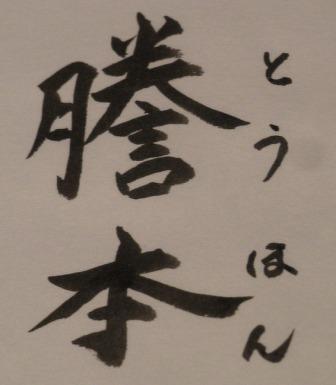 謄本
とうほん